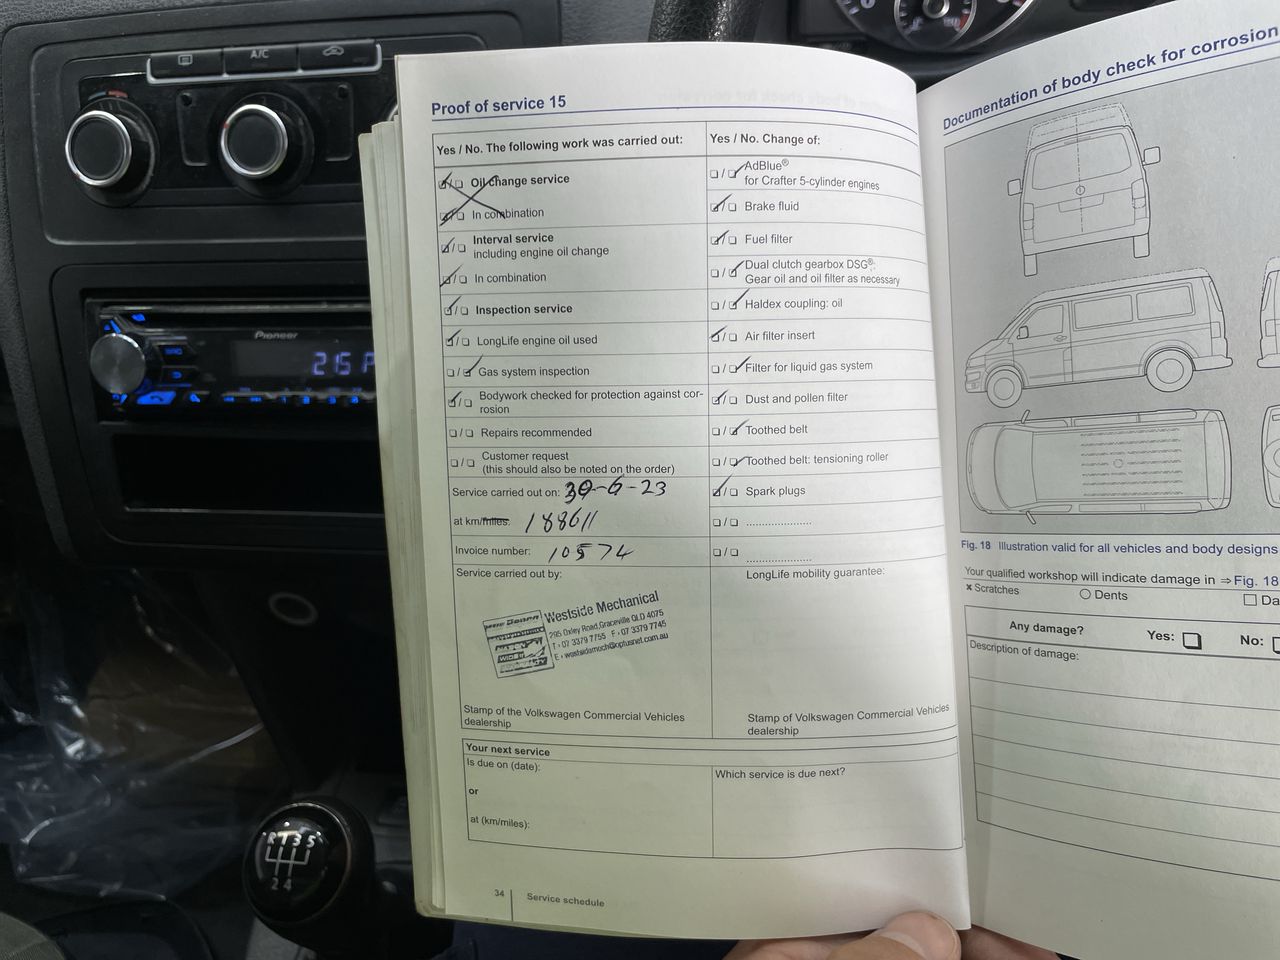 A/C
Pioneer
215 P
R 1 3 5
2 4
Proof of service 15
Yes / No. The following work was carried out:
Oil change service
In combination
Interval service
including engine oil change
In combination
Inspection service
LongLife engine oil used
Gas system inspection
Bodywork checked for protection against cor-
rosion
Repairs recommended
Customer request
(this should also be noted on the order)
Service carried out on: 30-6-23
at km/miles: 188611
Invoice number: 10574
Service carried out by:
Westside Mechanical
295 Oxley Road, Graceville QLD 4075
T: 07 3379 7755 F: 07 3379 7745
E: westsidemech@optusnet.com.au
Stamp of the Volkswagen Commercial Vehicles
dealership
Yes / No. Change of:
AdBlue®
for Crafter 5-cylinder engines
Brake fluid
Fuel filter
Dual clutch gearbox DSG®:
Gear oil and oil filter as necessary
Haldex coupling: oil
Air filter insert
Filter for liquid gas system
Dust and pollen filter
Toothed belt
Toothed belt: tensioning roller
Spark plugs
LongLife mobility guarantee:
Stamp of Volkswagen Commercial Vehicles
dealership
Your next service
Is due on (date):
or
at (km/miles):
Which service is due next?
34 Service schedule
Documentation of body check for corrosion
Fig. 18 Illustration valid for all vehicles and body designs
Your qualified workshop will indicate damage in ⇒ Fig. 18
× Scratches
Dents
Da
Any damage? Yes: No:
Description of damage: